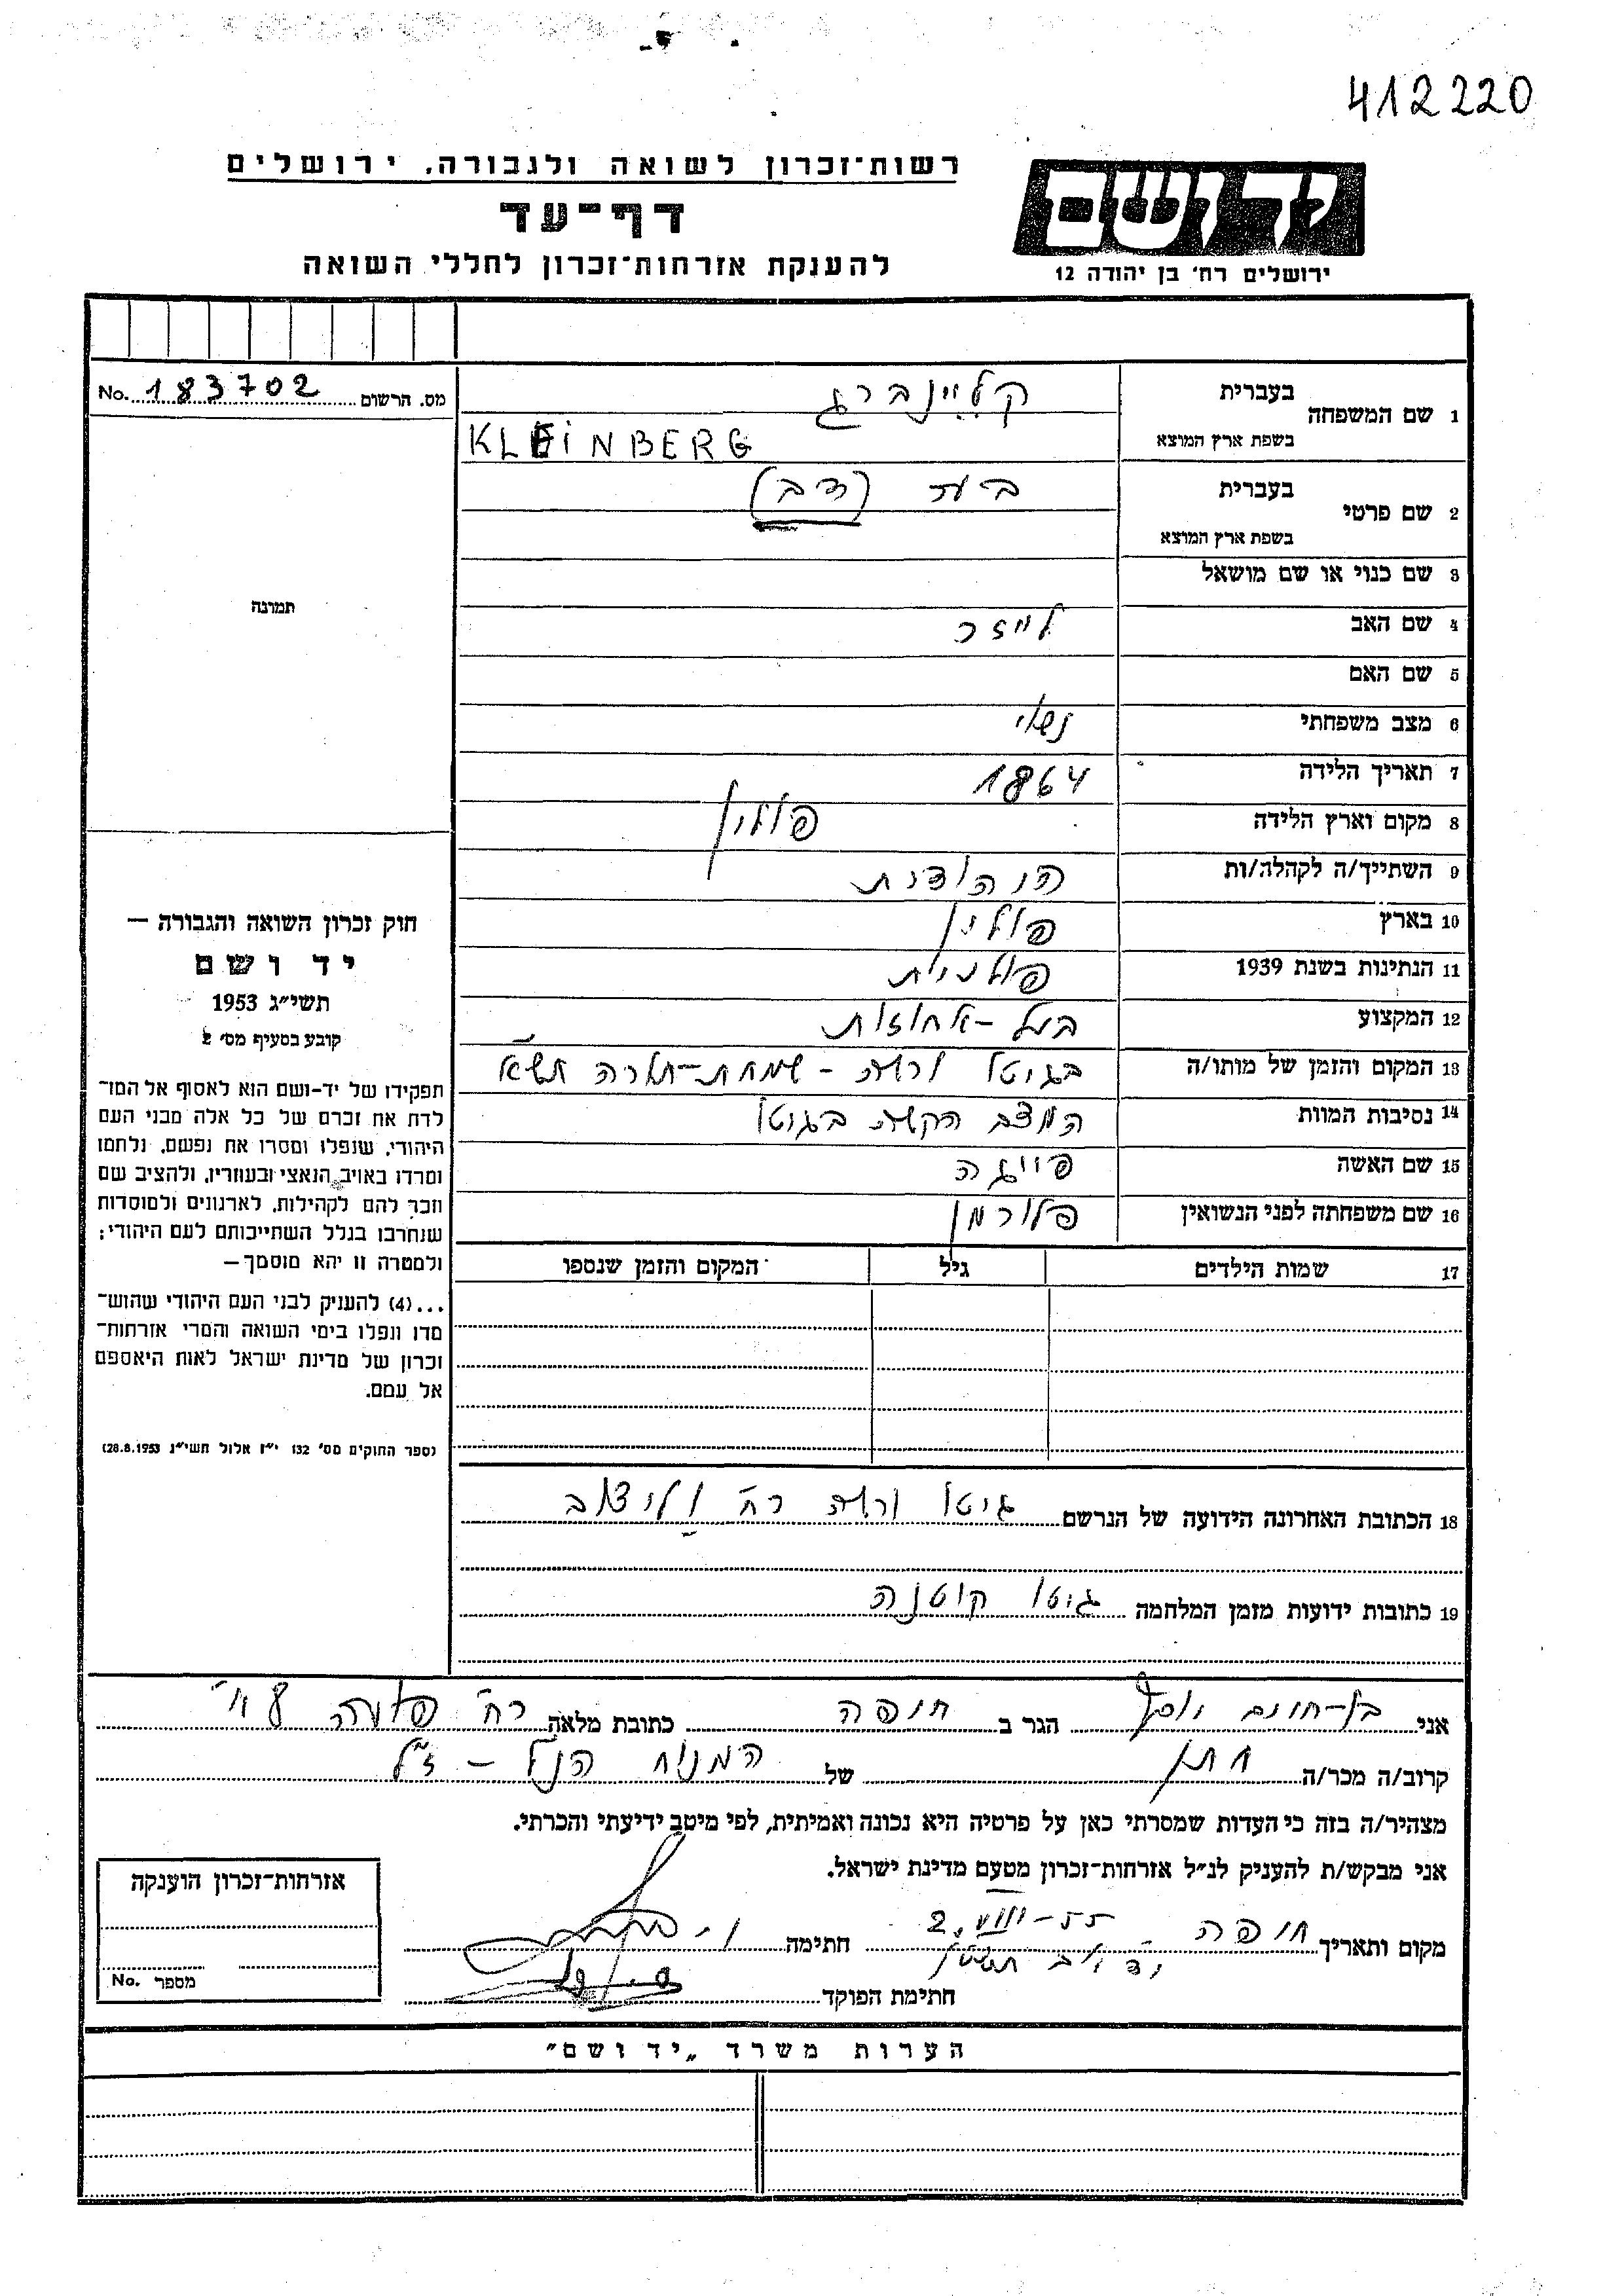 412220
רשות־זכרון לשואה ולגבורה, ירושלים
דף־עד
להענקת אזרחות־זכרון לחללי השואה
יד ושם
ירושלים רח' בן יהודה 12
מס. הרשום No. 183702
תמונה
חוק זכרון השואה והגבורה —
יד ושם
תשי״ג 1953
קובע בסעיף מס' 2
תפקידו של יד-ושם הוא לאסוף אל המו־
לדת את זכרם של כל אלה מבני העם
היהודי, שנפלו ומסרו את נפשם, נלחמו
ומרדו באויב הנאצי ובעוזריו, ולהציב שם
וזכר להם לקהילות, לארגונים ולמוסדות
שנחרבו בגלל השתייכותם לעם היהודי;
ולמטרה זו יהא מוסמך —
...(4) להעניק לבני העם היהודי שהוש־
מדו ונפלו בימי השואה והמרי אזרחות־
זכרון של מדינת ישראל לאות היאספם
אל עמם.
(ספר החוקים מס' 132 י״ז אלול תשי״ג 28.8.1953)
1 שם המשפחה בעברית קליינברג
בשפת ארץ המוצא KLEINBERG
2 שם פרטי בעברית (דב)
בשפת ארץ המוצא
3 שם כנוי או שם מושאל
4 שם האב לייזר
5 שם האם
6 מצב משפחתי נשוי
7 תאריך הלידה 1864
8 מקום וארץ הלידה פולין
9 השתייך/ה לקהלה/ות היהודית
10 בארץ פולין
11 הנתינות בשנת 1939 פולנית
12 המקצוע בעל-אחוזות
13 המקום והזמן של מותו/ה בגיטו ורשה - שמחת-תורה תש״א
14 נסיבות המוות המצב הקשה בגיטו
15 שם האשה פייגה
16 שם משפחתה לפני הנשואין
17 שמות הילדים גיל המקום והזמן שנספו
18 הכתובת האחרונה הידועה של הנרשם גיטו ורשה רח'
19 כתובות ידועות מזמן המלחמה גיטו קוטנה
אני בן-חיים יוסף הגר ב חיפה כתובת מלאה רח'
קרוב/ה מכר/ה חתן של המנוח הנ״ל - ז״ל
מצהיר/ה בזה כי העדות שמסרתי כאן על פרטיה היא נכונה ואמיתית, לפי מיטב ידיעתי והכרתי.
אני מבקש/ת להעניק לנ״ל אזרחות־זכרון מטעם מדינת ישראל.
מקום ותאריך חיפה 2.VIII-55 חתימה
חתימת הפוקד
אזרחות־זכרון הוענקה
מספר No.
הערות משרד „יד ושם״